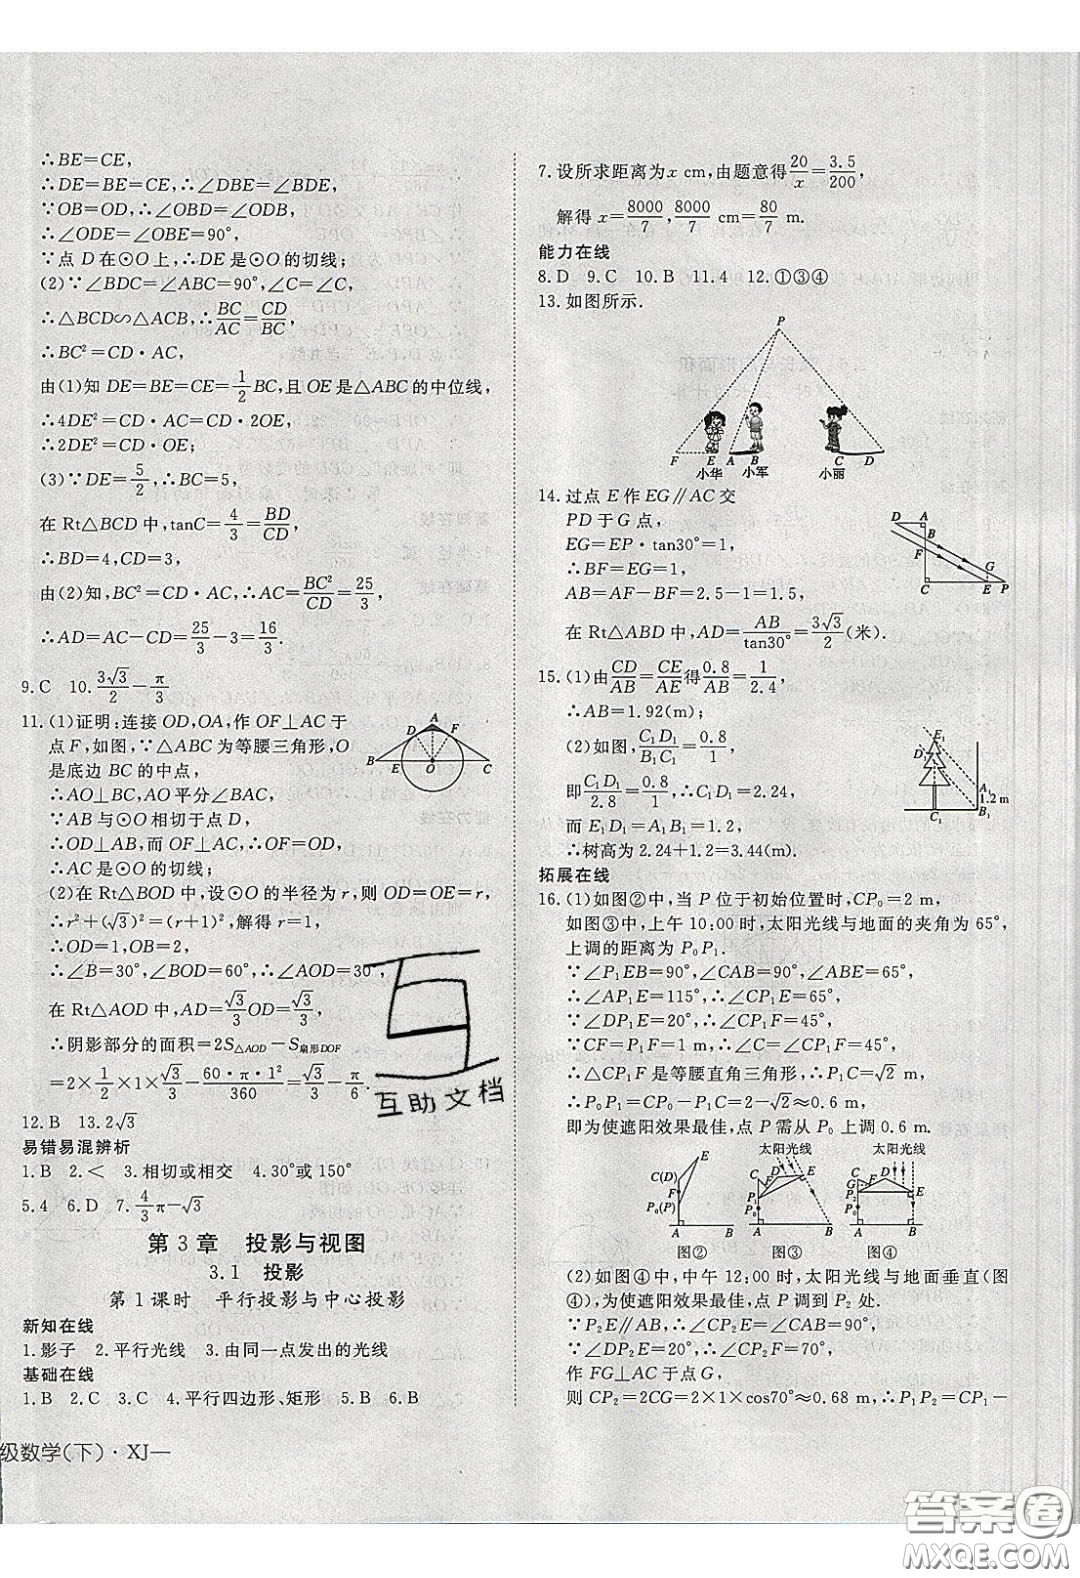 ∴BE=CE,
∴DE=BE=CE,∴∠DBE=∠BDE,
∵OB=OD,∴∠OBD=∠ODB,
∴∠ODE=∠OBE=90°,
∵点 D 在⊙O 上,∴DE 是⊙O 的切线;
(2)∵∠BDC=∠ABC=90°,∠C=∠C,
∴△BCD∽△ACB,∴BC/AC=CD/BC,
∴BC²=CD·AC,
由(1)知 DE=BE=CE=1/2BC,且 OE 是△ABC 的中位线,
∴4DE²=CD·AC=CD·2OE,
∴2DE²=CD·OE;
(3)∵DE=5/2,∴BC=5,
在 Rt△BCD 中,tanC=4/3=BD/CD,
∴BD=4,CD=3,
由(2)知,BC²=CD·AC,∴AC=BC²/CD=25/3,
∴AD=AC−CD=25/3−3=16/3.
9.C 10.3√3/2−π/3
11.(1)证明:连接 OD,OA,作 OF⊥AC 于
点 F,如图,∵△ABC 为等腰三角形,O
是底边 BC 的中点,
∴AO⊥BC,AO 平分∠BAC,
∵AB 与⊙O 相切于点 D,
∴OD⊥AB,而 OF⊥AC,∴OF=OD,
∴AC 是⊙O 的切线;
A
D F
B E O C
(2)在 Rt△BOD 中,设⊙O 的半径为 r,则 OD=OE=r,
∴r²+(√3)²=(r+1)²,解得 r=1,
∴OD=1,OB=2,
∴∠B=30°,∠BOD=60°,∴∠AOD=30°,
在 Rt△AOD 中,AD=√3/3OD=√3/3,
∴阴影部分的面积=2S△AOD−S扇形DOF
=2×1/2×1×√3/3−60·π·1²/360=√3/3−π/6.
12.B 13.2√3
易错易混辨析
1.B 2.< 3.相切或相交 4.30°或 150°
5.4 6.D 7.4/3π−√3
第 3 章 投影与视图
3.1 投影
第 1 课时 平行投影与中心投影
新知在线
1.影子 2.平行光线 3.由同一点发出的光线
基础在线
1.B 2.C 3.C 4.平行四边形、矩形 5.B 6.B
级数学(下)·XJ—
7.设所求距离为 x cm,由题意得20/x=3.5/200,
解得 x=8000/7,8000/7 cm=80/7 m.
能力在线
8.D 9.C 10.B 11.4 12.①③④
13.如图所示.
P
F E A B C D
小华 小军 小丽
14.过点 E 作 EG∥AC 交
PD 于 G 点,
EG=EP·tan30°=1,
∴BF=EG=1,
∴AB=AF−BF=2.5−1=1.5,
D A
B
F
G
C E P
在 Rt△ABD 中,AD=AB/tan30°=3√3/2(米).
15.(1)由CD/AB=CE/AE得0.8/AB=1/2.4,
∴AB=1.92(m);
(2)如图,C₁D₁/B₁C₁=0.8/1,
即C₁D₁/2.8=0.8/1,∴C₁D₁=2.24,
而 E₁D₁=A₁B₁=1.2,
∴树高为 2.24+1.2=3.44(m).
A₁
1.2 m
C₁ B₁
拓展在线
16.(1)如图②中,当 P 位于初始位置时,CP₀=2 m,
如图③中,上午 10:00 时,太阳光线与地面的夹角为 65°,
上调的距离为 P₀P₁.
∵∠P₁EB=90°,∠CAB=90°,∠ABE=65°,
∴∠AP₁E=115°,∴∠CP₁E=65°,
∵∠DP₁E=20°,∴∠CP₁F=45°,
∵CF=P₁F=1 m,∴∠C=∠CP₁F=45°,
∴△CP₁F 是等腰直角三角形,∴P₁C=√2 m,
∴P₀P₁=CP₀−P₁C=2−√2≈0.6 m,
即为使遮阳效果最佳,点 P 需从 P₀ 上调 0.6 m.
太阳光线 太阳光线
C(D) E
P₀(P)
A B
图② 图③ 图④
(2)如图④中,中午 12:00 时,太阳光线与地面垂直(图
④),为使遮阳效果最佳,点 P 调到 P₂ 处.
∵P₂E∥AB,∴∠CP₂E=∠CAB=90°,
∵∠DP₂E=20°,∴∠CP₂F=70°,
作 FG⊥AC 于点 G,
则 CP₂=2CG=2×1×cos70°≈0.68 m,∴P₁P₂=CP₁−
互助文档
答案卷
MXQE.COM